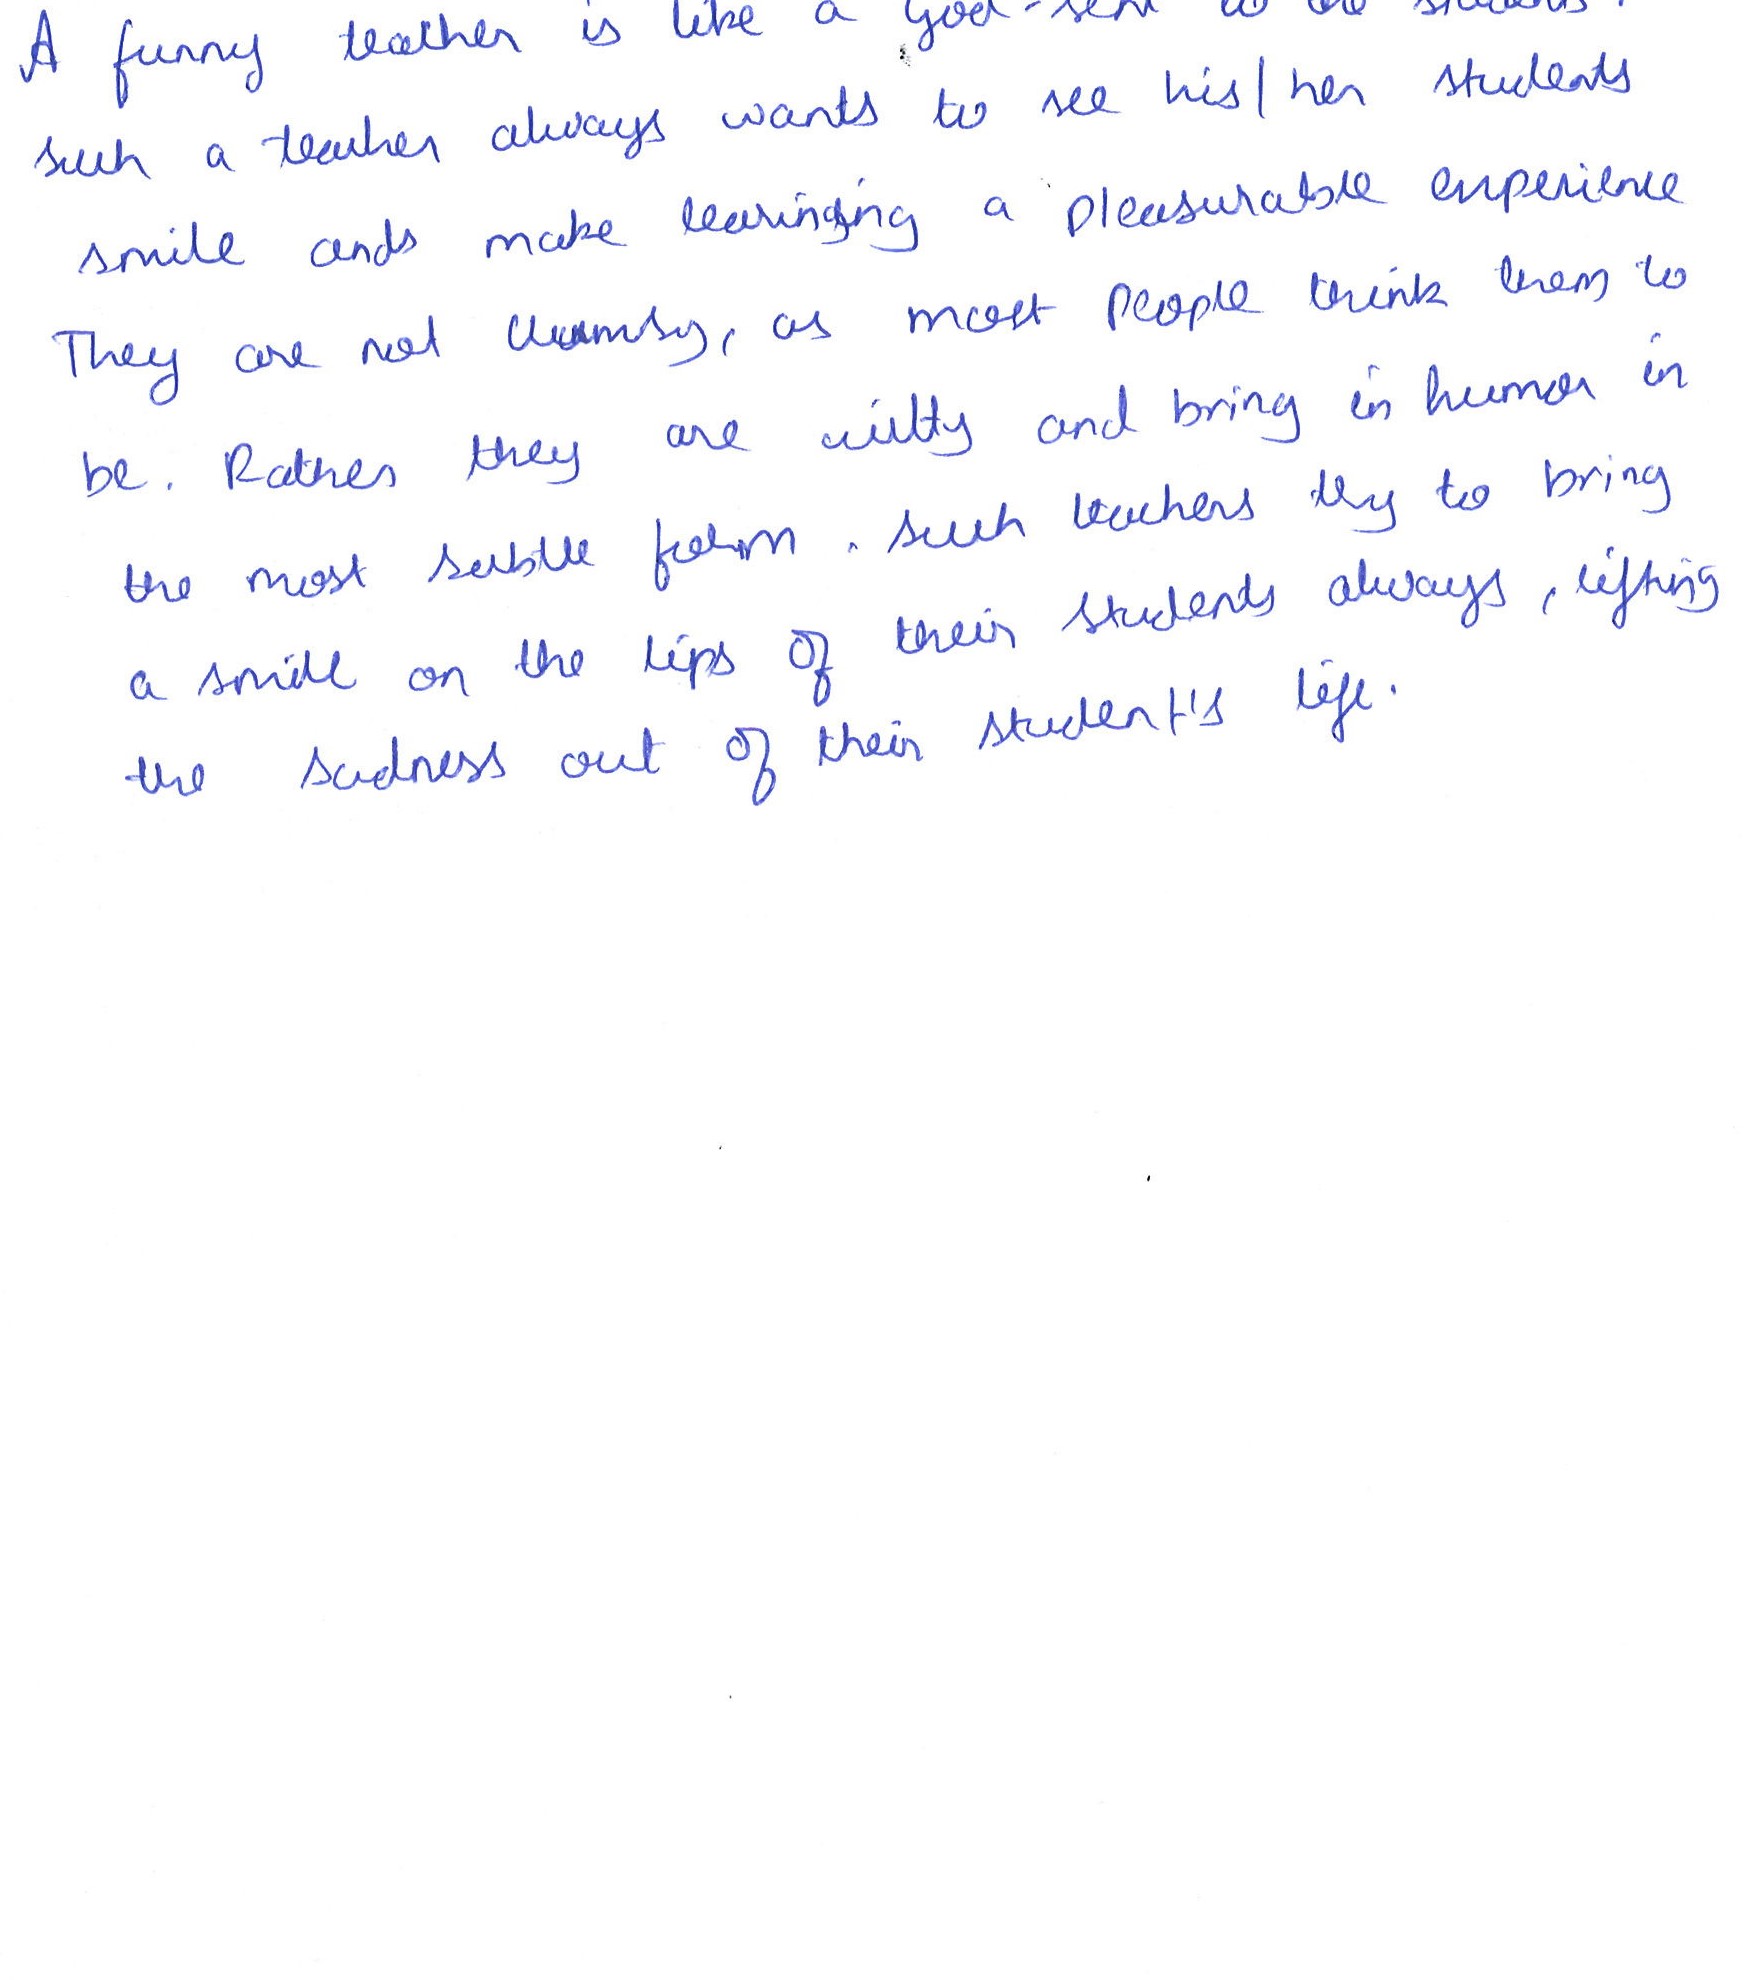 A funny teacher is like a god-sent to the students.
such a teacher always wants to see his/her students
smile ands make learinging a pleasurable experience
They are not clumsy, as most people think them to
be. Rather they are witty and bring in humor in
the most subtle form. such teachers try to bring
a smile on the lips of their students always, lifting
the sadness out of their student's life.